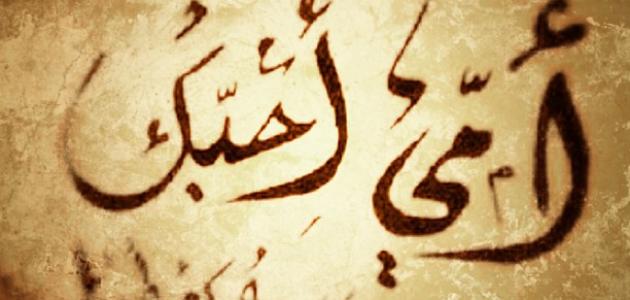 أمّي أحبّك